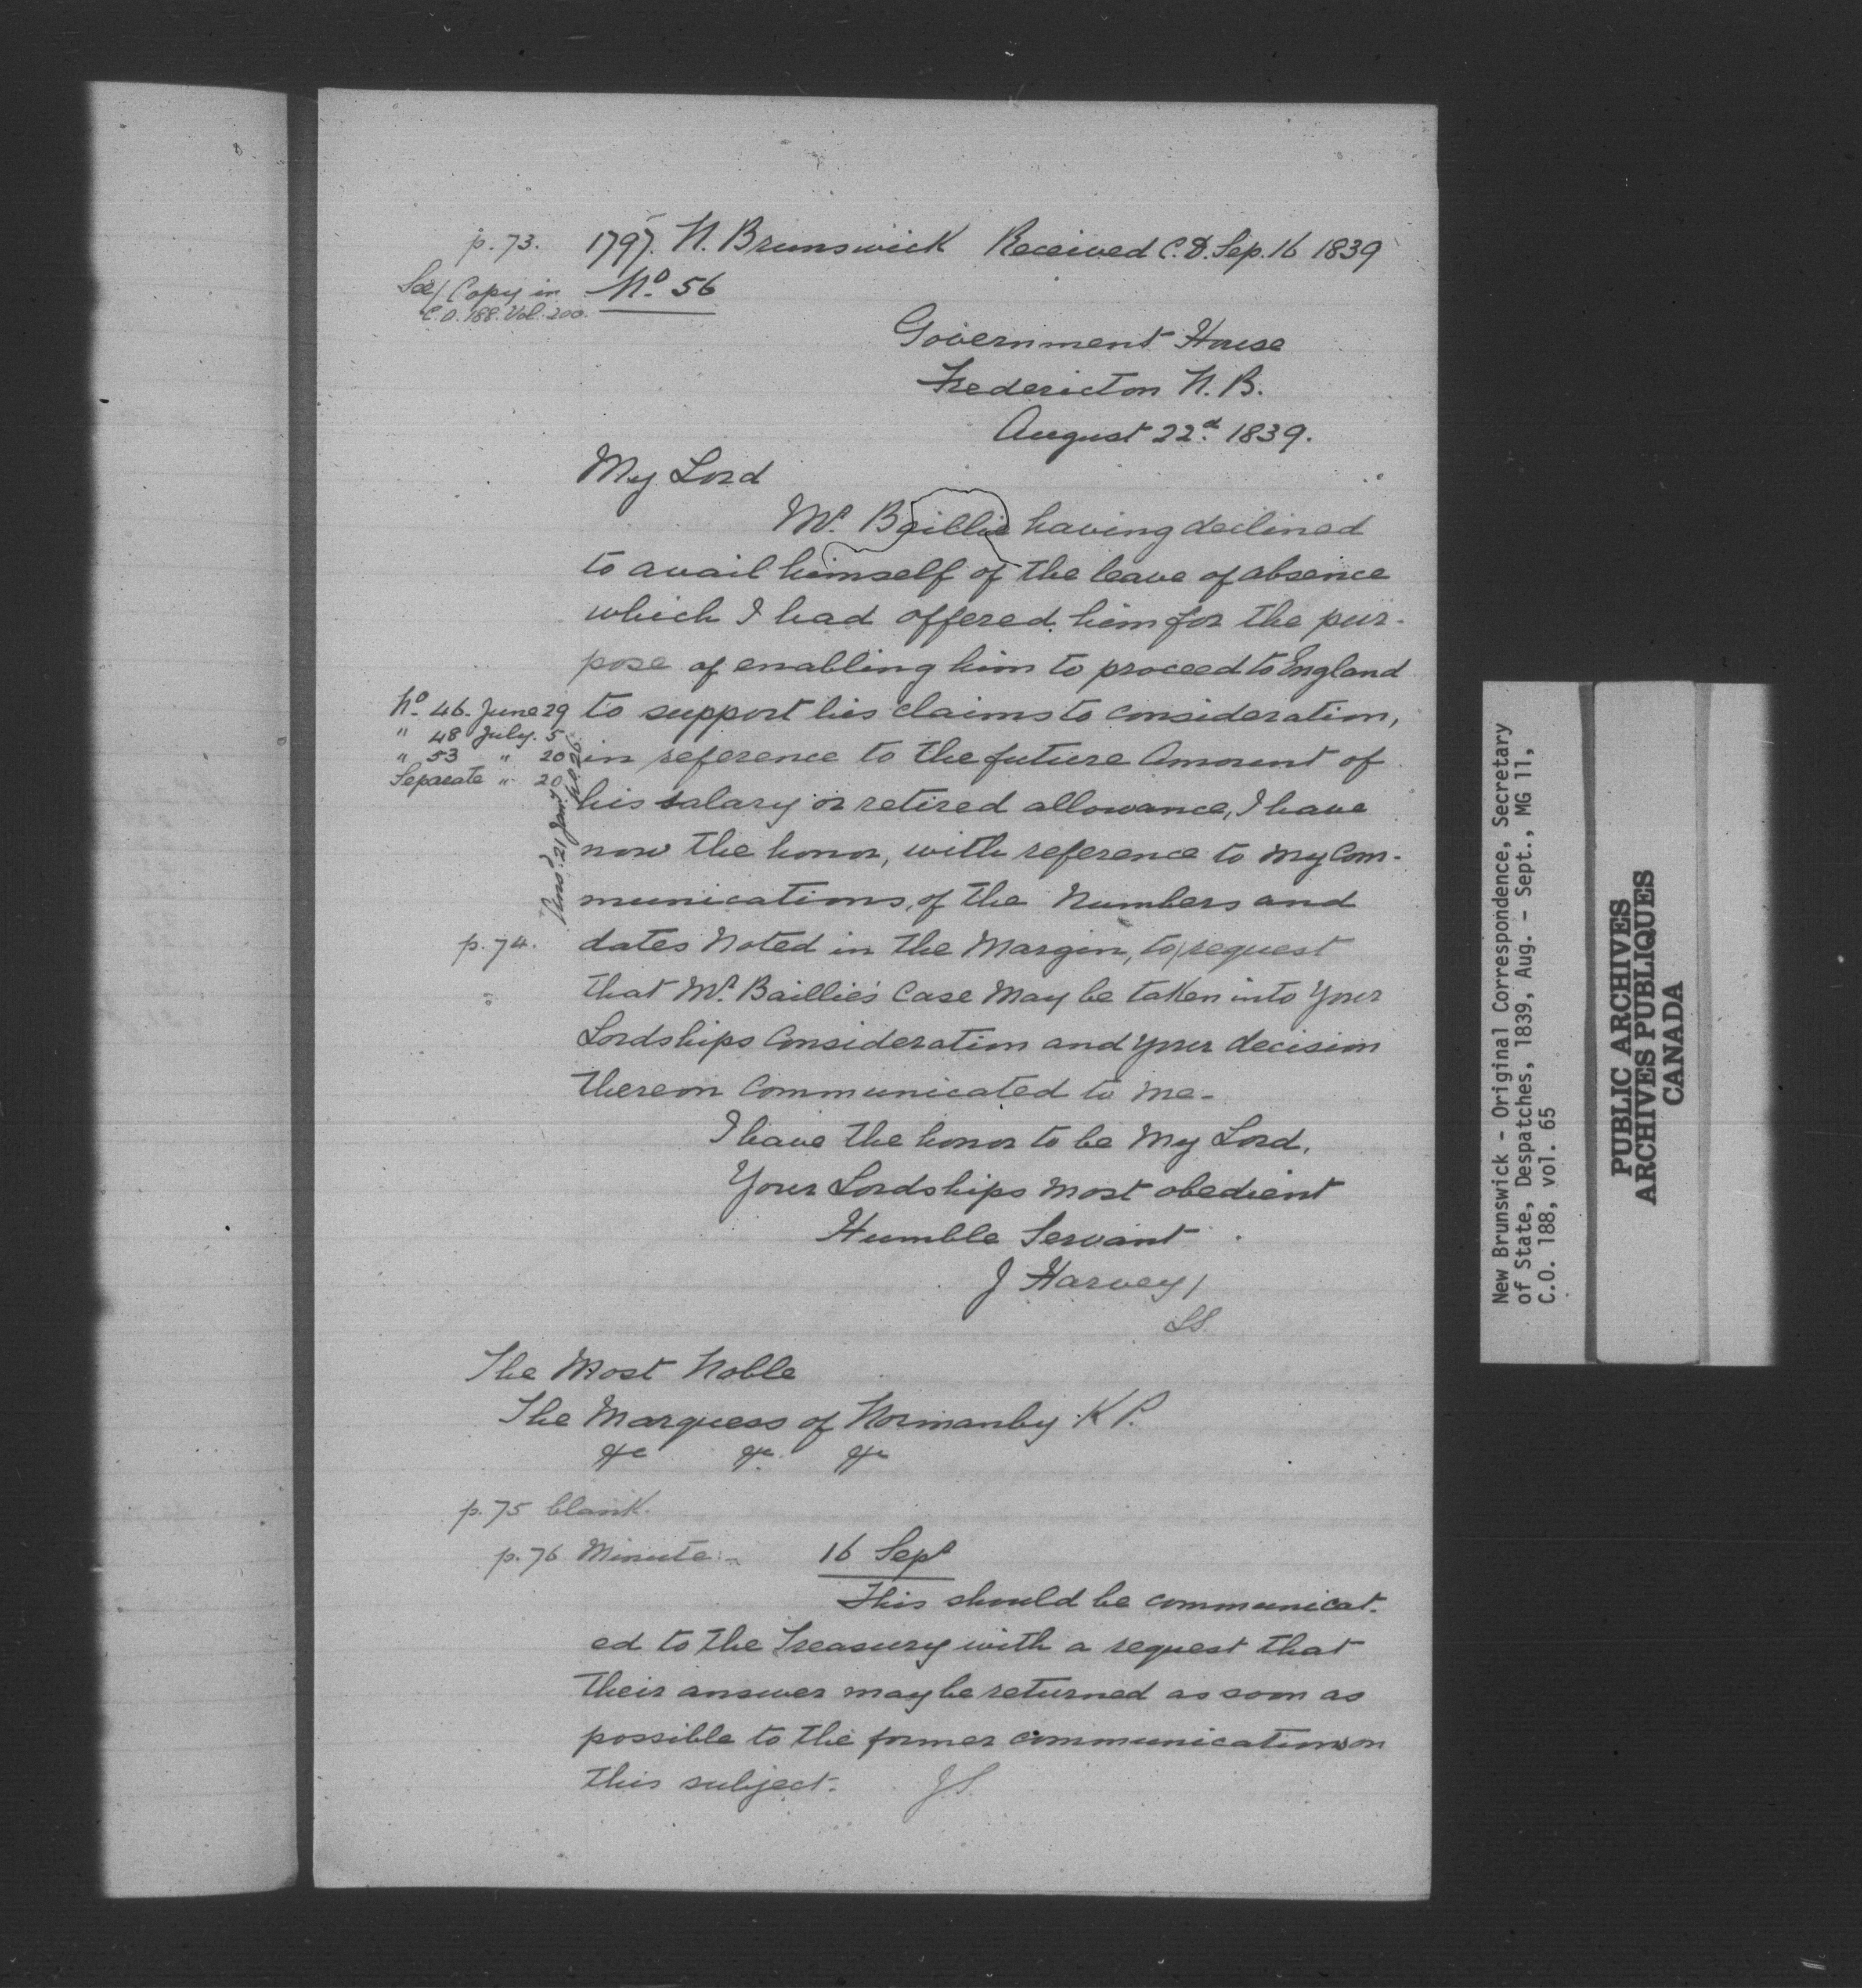 p. 73. 1797. N. Brunswick Received C.D. Sep. 16 1839
See/ Copy in No. 56
C.O. 188. Vol. 200.
Government House
Fredericton N. B.
August 22d. 1839.
My Lord
Mr. Baillie having declined
to avail himself of the leave of absence
which I had offered him for the pur-
pose of enabling him to proceed to England
No. 46. June 29 to support his claims to consideration,
" 48 July. 5
" 53 " 20 in reference to the future Amount of
Separate " 20
his salary or retired allowance, I have
now the honor, with reference to my Com-
munications, of the Numbers and
Ansd. 21 Jany
p. 74. dates Noted in the Margin, to/request
that Mr. Baillie's Case May be taken into Your
Lordships Consideration and your decision
thereon Communicated to Me-
I have the honor to be My Lord,
Your Lordships Most obedient
Humble Servant
J Harvey/
LS.
The Most Noble
The Marquess of Normanby K P.
&c &c &c
p. 75 blank.
p. 76 Minute:- 16 Sepr
This should be communicat-
ed to the Treasury with a request that
their answer may be returned as soon as
possible to the former communications on
this subject. J.S.
New Brunswick - Original Correspondence, Secretary
of State, Despatches, 1839, Aug. - Sept., MG 11,
C.O. 188, vol. 65
PUBLIC ARCHIVES
ARCHIVES PUBLIQUES
CANADA